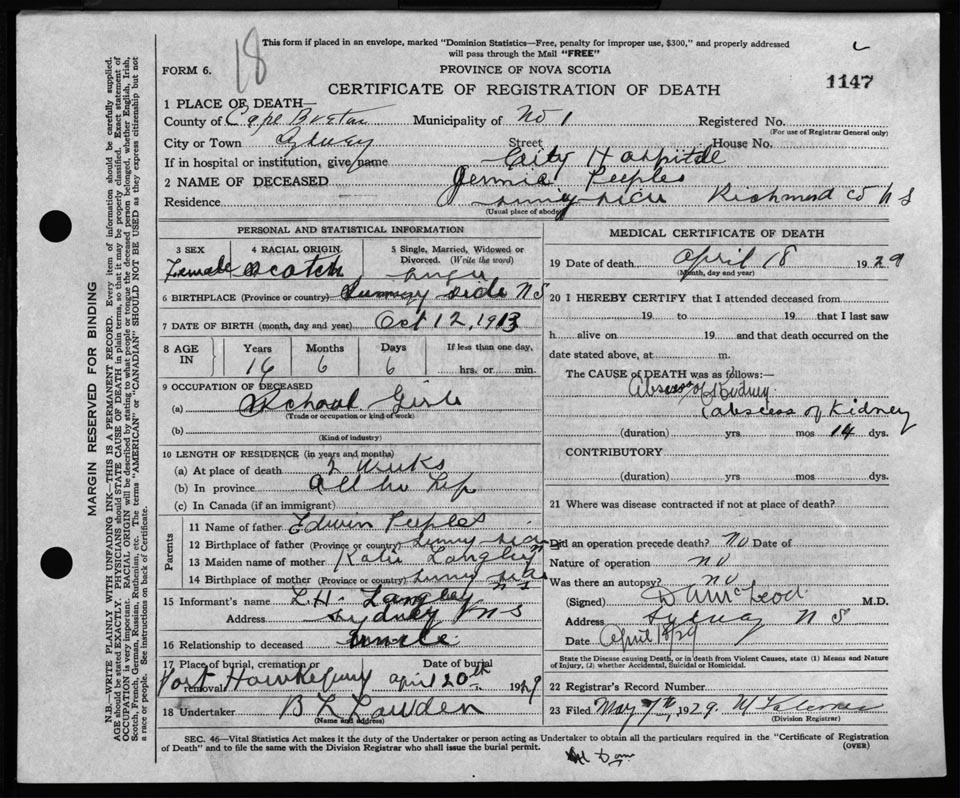 18
This form if placed in an envelope, marked "Dominion Statistics—Free, penalty for improper use, $300," and properly addressed
will pass through the Mail "FREE"
FORM 6.
PROVINCE OF NOVA SCOTIA
1147
CERTIFICATE OF REGISTRATION OF DEATH
1 PLACE OF DEATH—
County of Cape Breton Municipality of No 1 Registered No.
(For use of Registrar General only)
City or Town Sydney Street House No.
If in hospital or institution, give name City Hospital
2 NAME OF DECEASED Jennie Peeples
Residence Sunny side Richmond Co N S
(Usual place of abode)
PERSONAL AND STATISTICAL INFORMATION
3 SEX
Female
4 RACIAL ORIGIN
Scotch
5 Single, Married, Widowed or
Divorced. (Write the word)
Single
6 BIRTHPLACE (Province or country) Sunny side N S
7 DATE OF BIRTH (month, day and year) Oct 12, 1913
8 AGE IN
Years Months Days If less than one day,
16 6 6 hrs. or min.
9 OCCUPATION OF DECEASED
(a) School Girl
(Trade or occupation or kind of work)
(b)
(Kind of industry)
10 LENGTH OF RESIDENCE (in years and months)
(a) At place of death 2 Weeks
(b) In province All her life
(c) In Canada (if an immigrant)
Parents
11 Name of father Edwin Peeples
12 Birthplace of father (Province or country) Sunny side
13 Maiden name of mother Katie Langley
14 Birthplace of mother (Province or country) Sunny side
N S
15 Informant's name L.H. Langley
Address Sydney N S
16 Relationship to deceased Uncle
17 Place of burial, cremation or removal Date of burial
Port Hawkesbury april 20th 1929
18 Undertaker B L
(Name and address)
MEDICAL CERTIFICATE OF DEATH
19 Date of death April 18 1929
(Month, day and year)
20 I HEREBY CERTIFY that I attended deceased from
19 to 19 that I last saw
h alive on 19 and that death occurred on the
date stated above, at m.
The CAUSE of DEATH was as follows:—
Abscess of Kidney
(abscess of Kidney
(duration) yrs mos 14 dys.
CONTRIBUTORY
(duration) yrs mos dys.
21 Where was disease contracted if not at place of death?
Did an operation precede death? No Date of
Nature of operation No
Was there an autopsy? No
(Signed) D A McLeod M.D.
Address Sydney N S
Date April 18/29
State the Disease causing Death, or in death from Violent Causes, state (1) Means and Nature
of Injury, (2) whether Accidental, Suicidal or Homicidal.
22 Registrar's Record Number
23 Filed May 7th 1929. M
(Division Registrar)
SEC. 46—Vital Statistics Act makes it the duty of the Undertaker or person acting as Undertaker to obtain all the particulars required in the "Certificate of Registration
of Death" and to file the same with the Division Registrar who shall issue the burial permit.
(OVER)
MARGIN RESERVED FOR BINDING
N.B.—WRITE PLAINLY WITH UNFADING INK—THIS IS A PERMANENT RECORD. Every item of information should be carefully supplied.
AGE should be stated EXACTLY. PHYSICIANS should STATE CAUSE OF DEATH in plain terms, so that it may be properly classified. Exact statement of
OCCUPATION is very important. RACIAL ORIGIN will be described by stating to what people or tongue the deceased person belonged, whether English, Irish,
Scotch, French, German, Russian, Ruthenian, etc. The terms "AMERICAN" or "CANADIAN" SHOULD NOT BE USED as they express citizenship but not
a race or people. See instructions on back of Certificate.